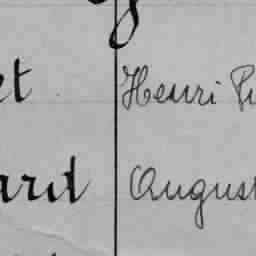 et Henri
ard August